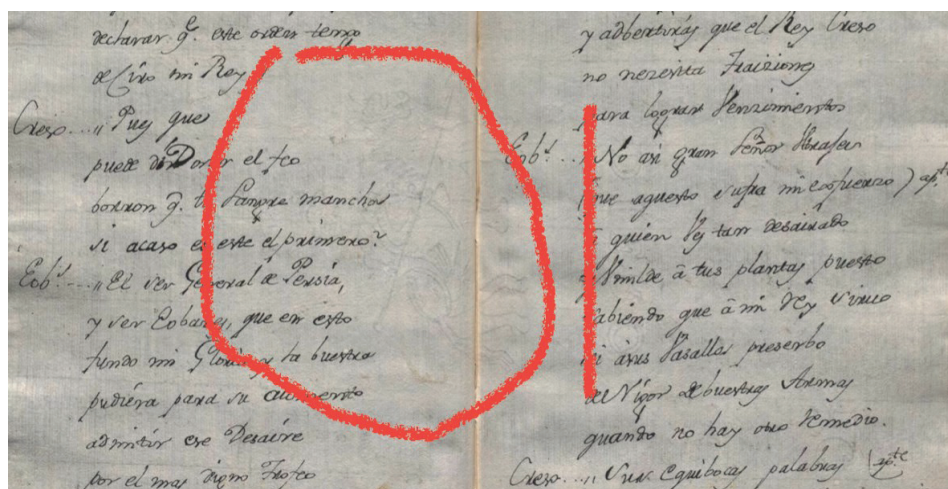 declarar q.e este orden tengo
de Ciro mi Rey
Creso .... ,, Pues que
puede
borron q. manchas
si acaso es este el primero?
Eob.s .... ,, El ser General de Persia,
y ser Eobanes, que en esto
fundo mi Gloria y la buestra
pudiera para su aumento
admitir ese Desaire
por el mas digno Trofeo
y adbertirás que el Rey Creso
no nezesita Traiziones
para lograr Venzimientos
Eob.s .. ,, No asi gran Señor
que aquesto sufra mi esfuerzo) ap.te
à quien tan desairado
Vmilde â tus plantas puesto
sabiendo que â mi Rey
Vasallos preserbo
del Rigor de buestras Armas
quando no hay otro remedio.
Creso .... ,, equibocas palabras ap.te